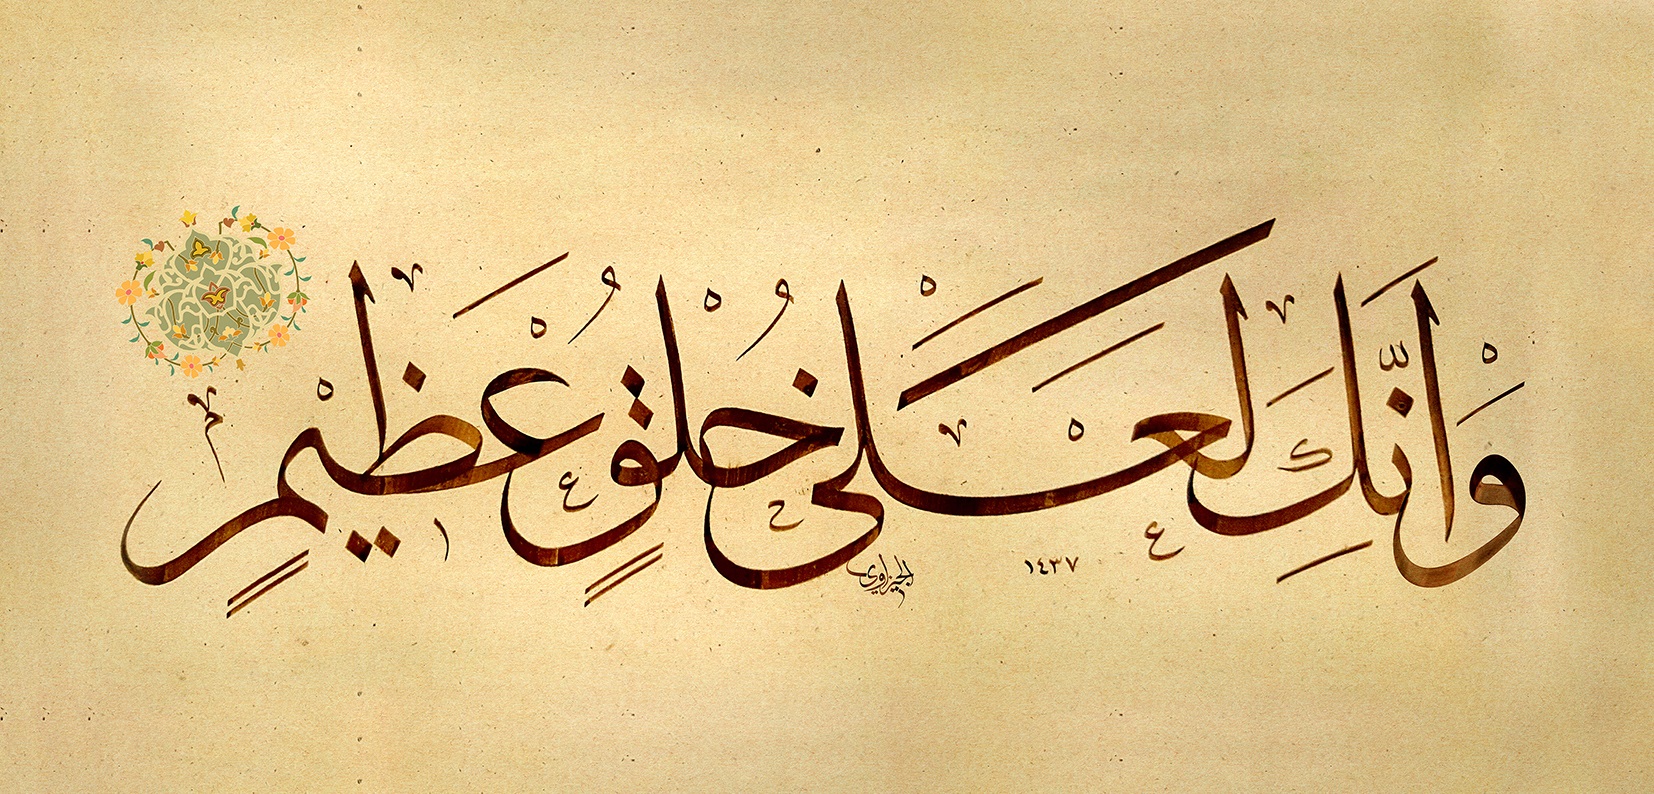 وَإنَّكَ لَعَلَى خُلُقٍ عَظِيمٍ
الجيزاوي
١٤٣٧